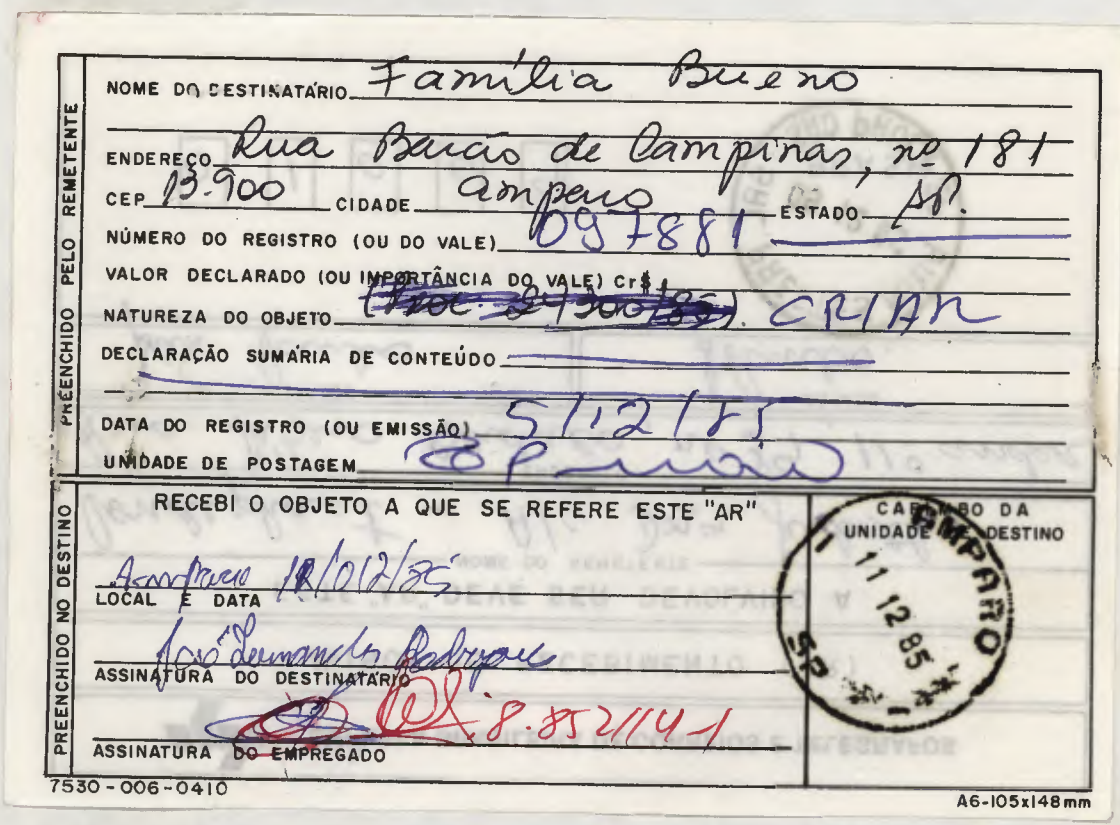 PREENCHIDO PELO REMETENTE
NOME DO DESTINATÁRIO Família Bueno
ENDEREÇO Rua Barão de Campinas, nº 181
CEP 13.900 CIDADE Amparo ESTADO SP.
NÚMERO DO REGISTRO (OU DO VALE) 097881
VALOR DECLARADO (OU IMPORTÂNCIA DO VALE) Cr$
NATUREZA DO OBJETO CR/AR
DECLARAÇÃO SUMÁRIA DE CONTEÚDO
DATA DO REGISTRO (OU EMISSÃO) 5/12/85
UNIDADE DE POSTAGEM
PREENCHIDO NO DESTINO
RECEBI O OBJETO A QUE SE REFERE ESTE "AR"
Amparo
LOCAL E DATA
José Fernandes Rodrigues
ASSINATURA DO DESTINATÁRIO
8.852114-1
ASSINATURA DO EMPREGADO
CARIMBO DA
UNIDADE DE DESTINO
AMPARO
11 12 85
SP
7530-006-0410
A6-105x148mm